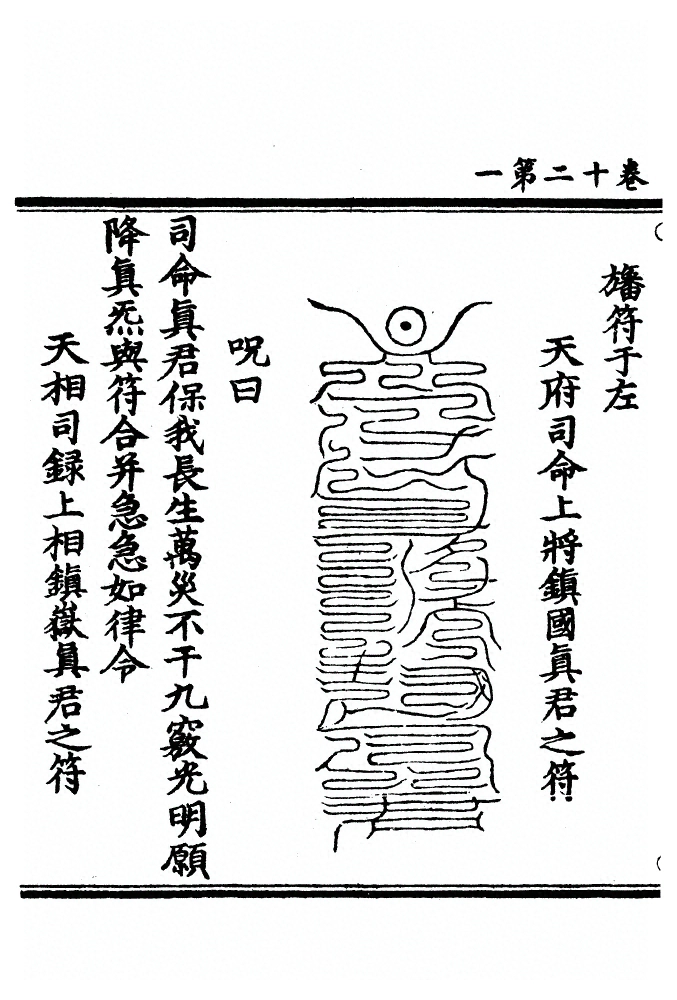 卷十二第一
旛符于左
天府司命上將鎮國眞君之符
呪曰
司命眞君保我長生萬災不干九竅光明願
降眞炁與符合并急急如律令
天相司錄上相鎮嶽眞君之符